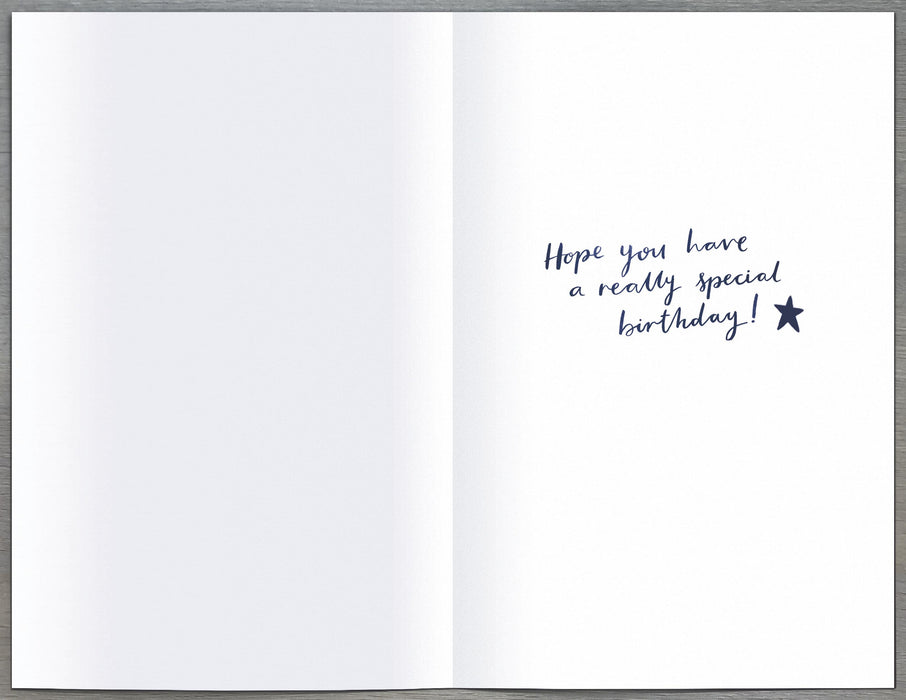 Hope you have
a really special
birthday!